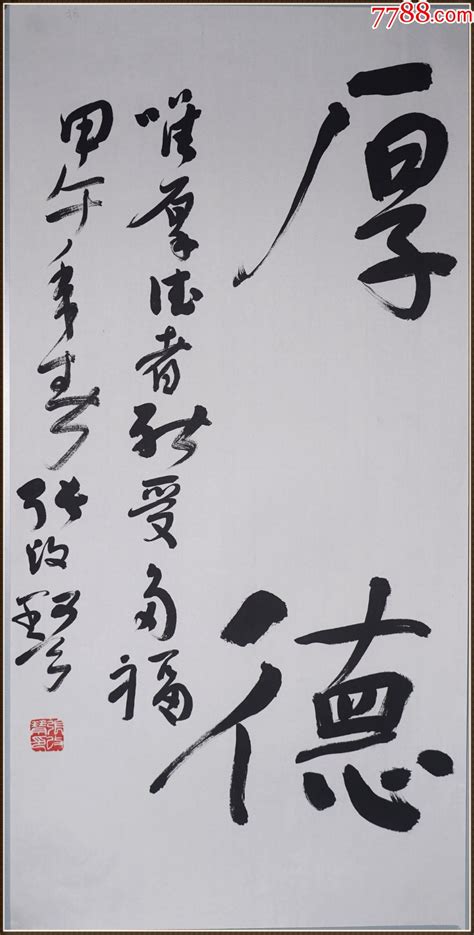 7788.com
厚德
唯厚德者能受多福
甲午年春 张改琴